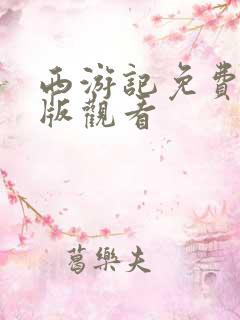 西游記免費
版觀看
葛樂夫